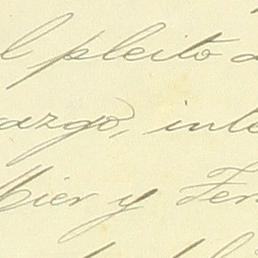 l pleito
azgo, inte
Mier y Fer